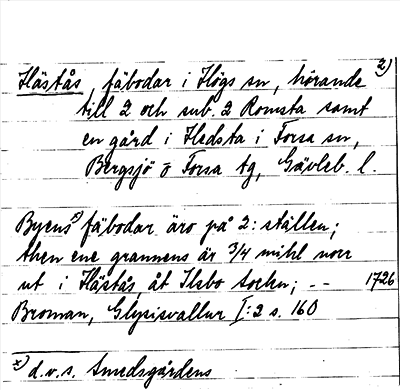 2)
Hästås, fäbodar i Högs sn, hörande
till 2 och sub. 2 Romsta samt
en gård i Hedsta i Forsa sn,
Bergsjö o Forsa tg, Gävleb. l.
Byens x) fäbodar äro på 2: ställen;
then ene grannens är 3/4 mihl norr
ut i Hästås åt Ilsbo sochn; -- 1726
Broman, Glysisvallur I:2 s. 160
x) d.v.s. Smedsgårdens